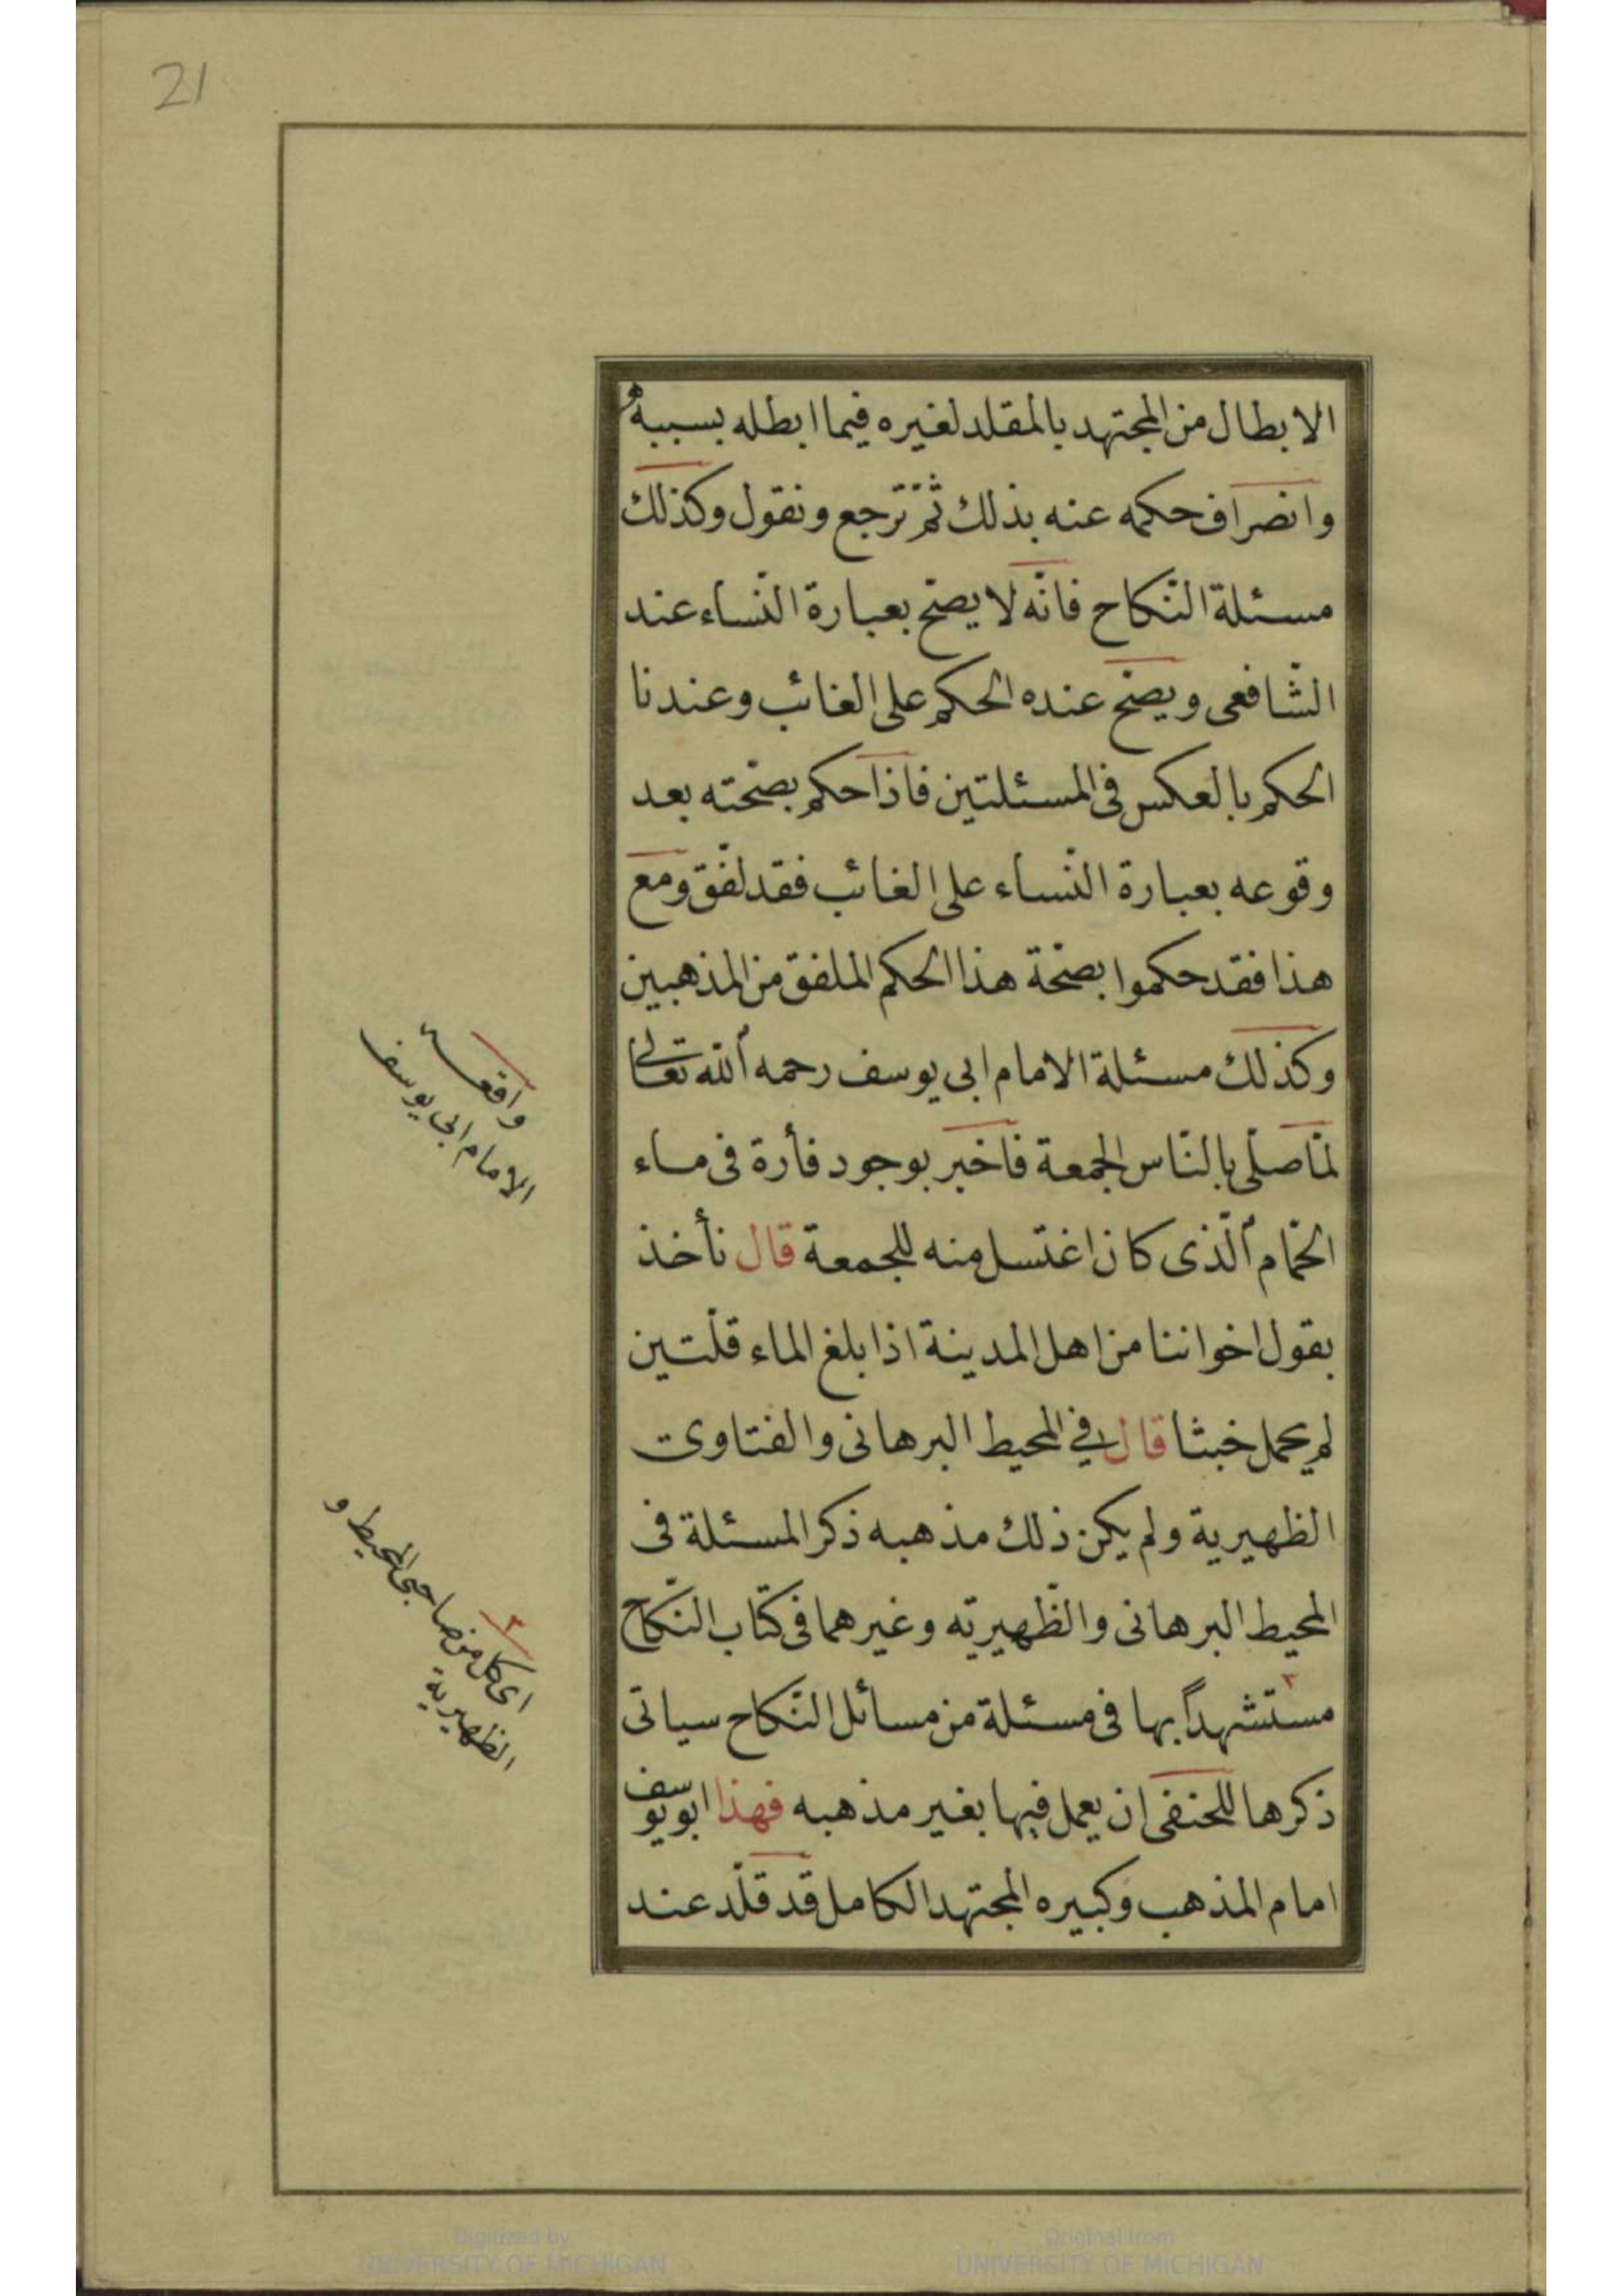 21
الابطال من المجتهد بالمقلد لغيره فيما ابطله بسببه
وانصراف حكمه عنه بذلك ثمّ نرجع ونقول وكذلك
مسئلة النّكاح فانّه لا يصحّ بعبارة النّساء عند
الشّافعى ويصحّ عنده الحكم على الغائب وعندنا
الحكم بالعكس فى المسئلتين فاذا حكم بصحّته بعد
وقوعه بعبارة النّساء على الغائب فقد لفّق ومع
هذا فقد حكموا بصحّة هذا الحكم الملفق من المذهبين
وكذلك مسئلة الامام ابى يوسف رحمه الله تعالى
لمّا صلّى بالنّاس الجمعة فاخبر بوجود فأرة فى ماء
الحمّام الّذى كان اغتسل منه للجمعة قال نأخذ
بقول اخواننا من اهل المدينة اذا بلغ الماء قلّتين
لم يحمل خبثا قال فى المحيط البرهانى والفتاوى
الظهيرية ولم يكن ذلك مذهبه ذكر المسئلة فى
المحيط البرهانى والظّهيريّه وغيرهما فى كتاب النّكاح
مستشهداً بها فى مسئلة من مسائل النّكاح سياتى
ذكرها للحنفى ان يعمل فيها بغير مذهبه فهذا ابو يوسف
امام المذهب وكبيره المجتهد الكامل قد قلّد عند
واقعة
الامام ابى يوسف
اى كل من صاحبى المحيط و
الظهيرية
Digitized by
UNIVERSITY OF MICHIGAN
Original from
UNIVERSITY OF MICHIGAN